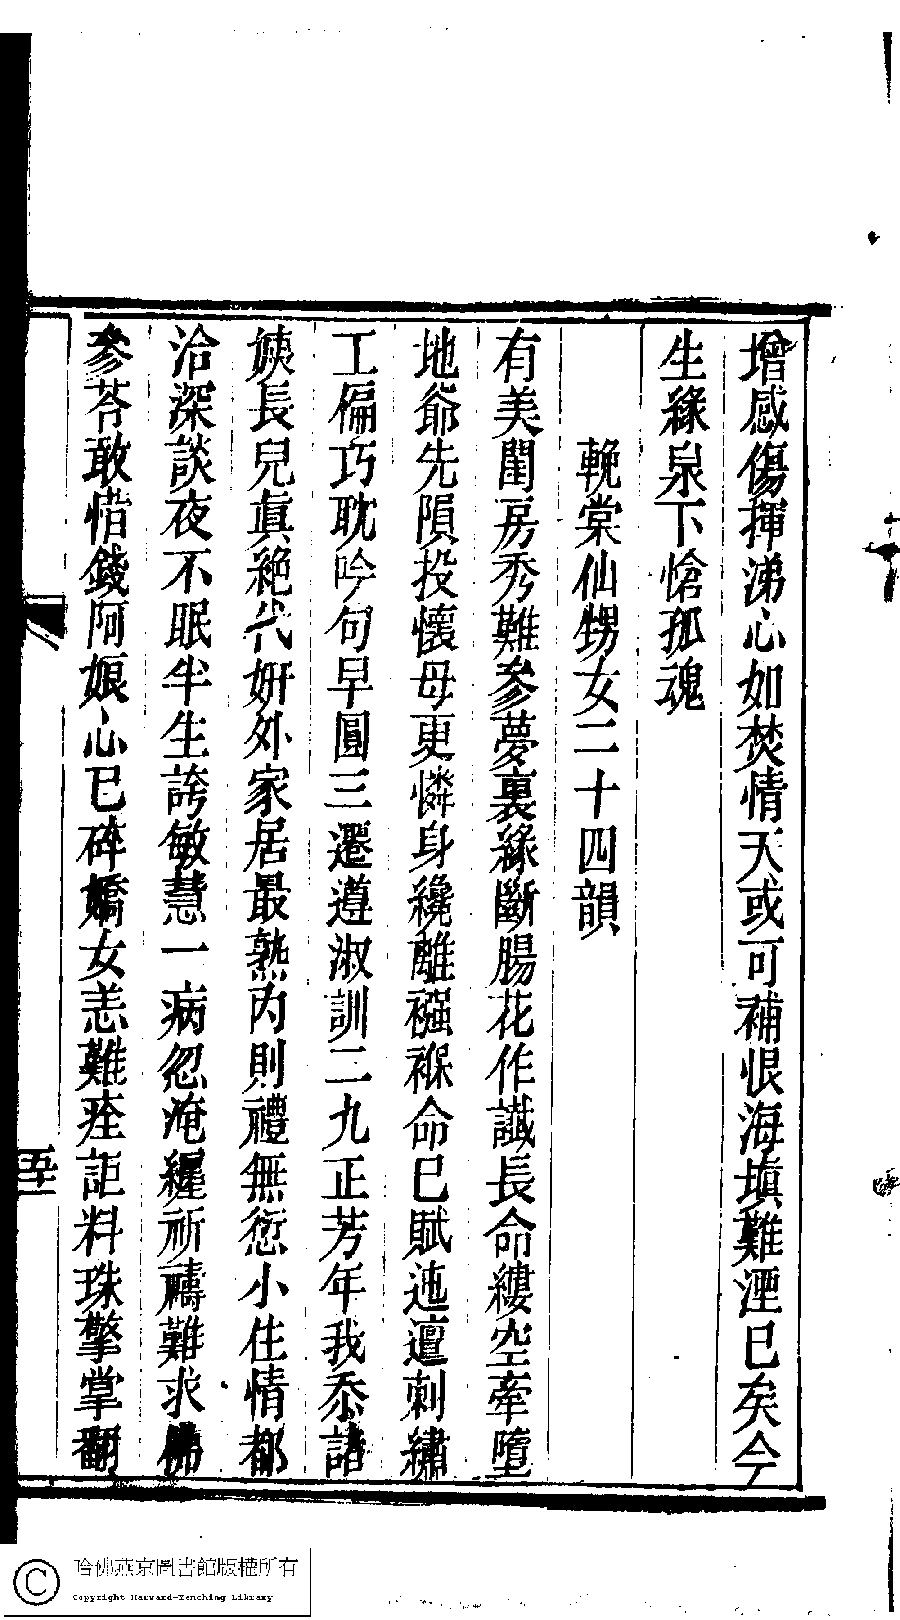 增感傷揮涕心如焚情天或可補恨海塡難湮已矣今
生緣泉下愴孤魂
輓棠仙甥女二十四韻
有美閨房秀難參夢裏緣斷腸花作讖長命縷空牽墮
地爺先隕投懷母更憐身纔離襁褓命已賦迍邅刺繡
工偏巧耽吟句早圓三遷遵淑訓二九正芳年我忝諸
姨長兒眞絕代妍外家居最熟內則禮無愆小住情都
洽深談夜不眠半生誇敏慧一病忽淹纏祈禱難求佛
參苓敢惜錢阿娘心已碎嬌女恙難痊詎料珠擎掌翻
五十一
哈佛燕京圖書館版權所有
Copyright Harvard-Yenching Library